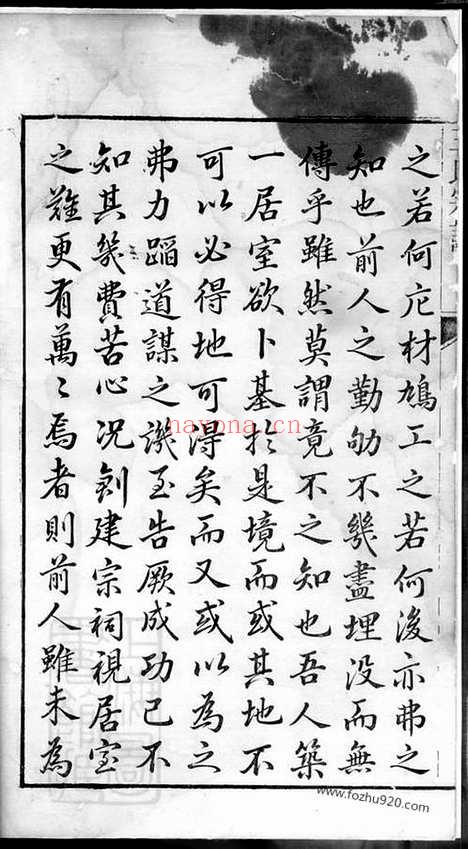 之若何庀材鳩工之若何後亦弗之
知也前人之勤劬不幾盡埋没而無
傳乎雖然莫謂竟不之知也吾人築
一居室欲卜基扵是境而或其地不
可以必得地可得矣而又或以為之
弗力蹈道謀之譏至告厥成功已不
知其幾費苦心况創建宗祠視居室
之難更有萬〻焉者則前人雖未為
nayona.cn
www.fozhu920.com